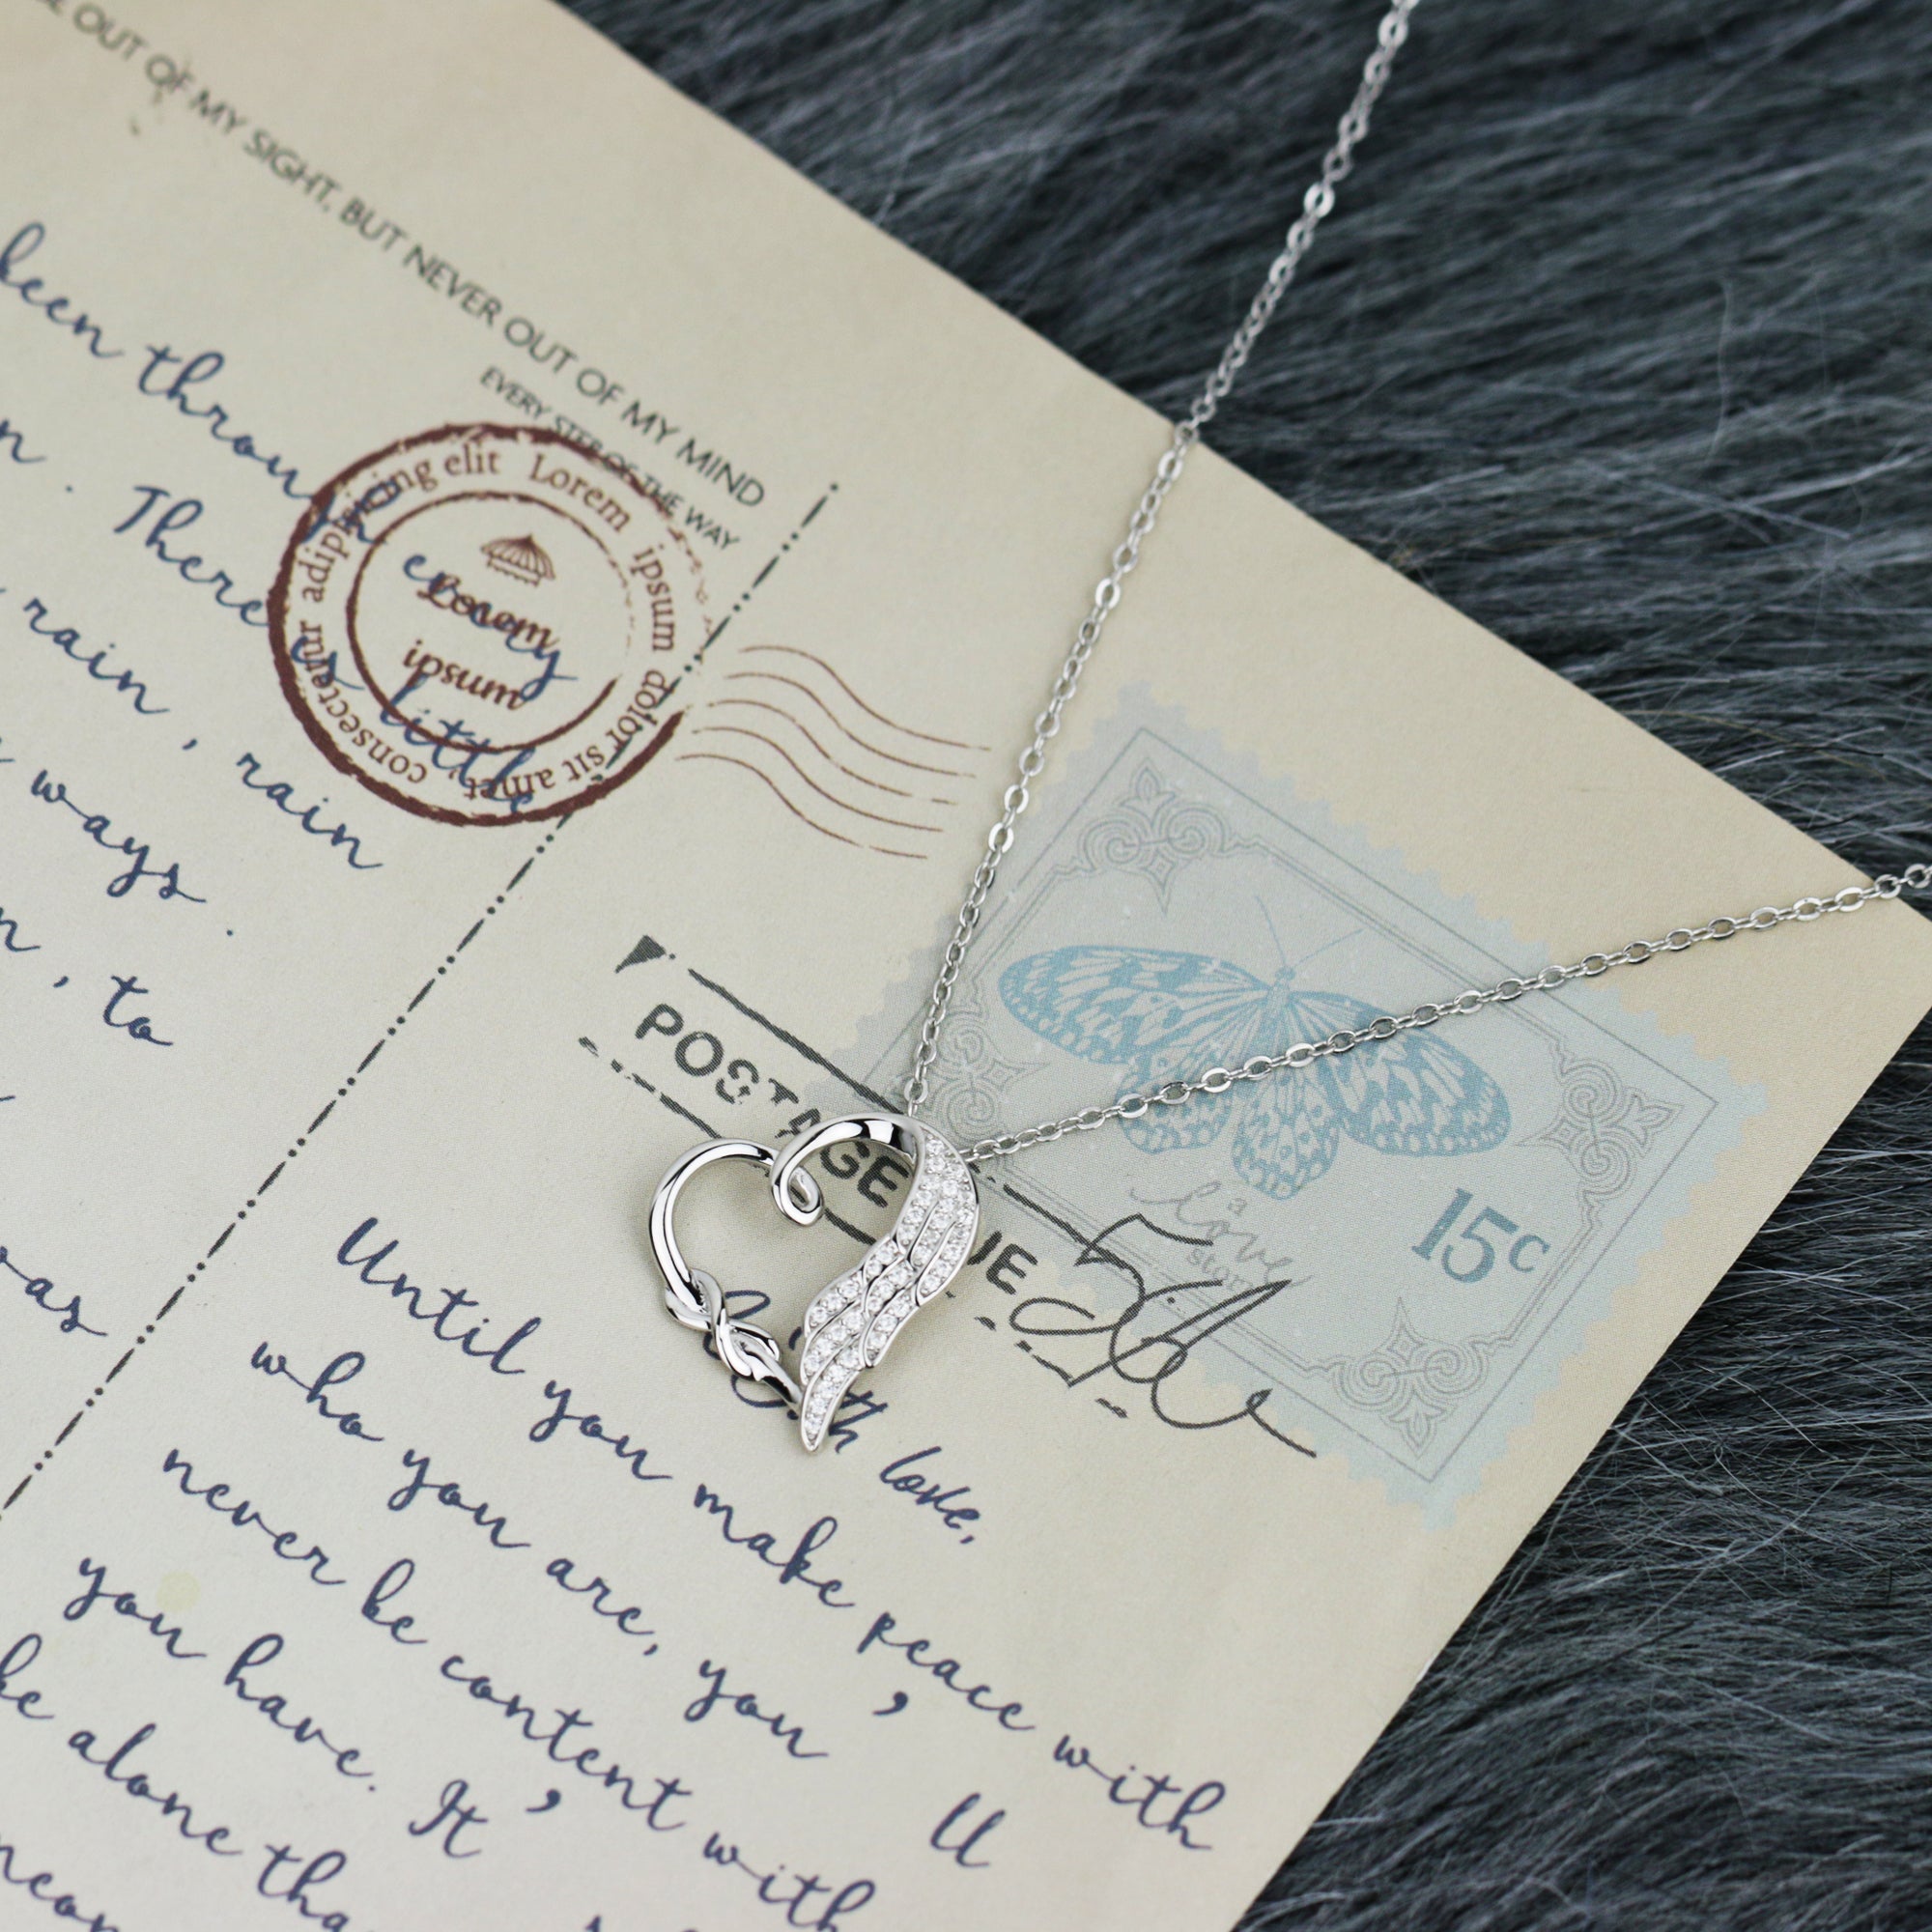 OUT OF MY SIGHT, BUT NEVER OUT OF MY MIND
EVERY STEP OF THE WAY
been through every
n. There is little
rain, rain
ways.
n, to
was
Lorem ipsum dolor sit amet consectetur adipisicing elit
Lorem
ipsum
POSTAGE DUE
a
love
15c
with love,
Until you make peace with
who you are, you'll
never be content with
you have. It's
be alone tha